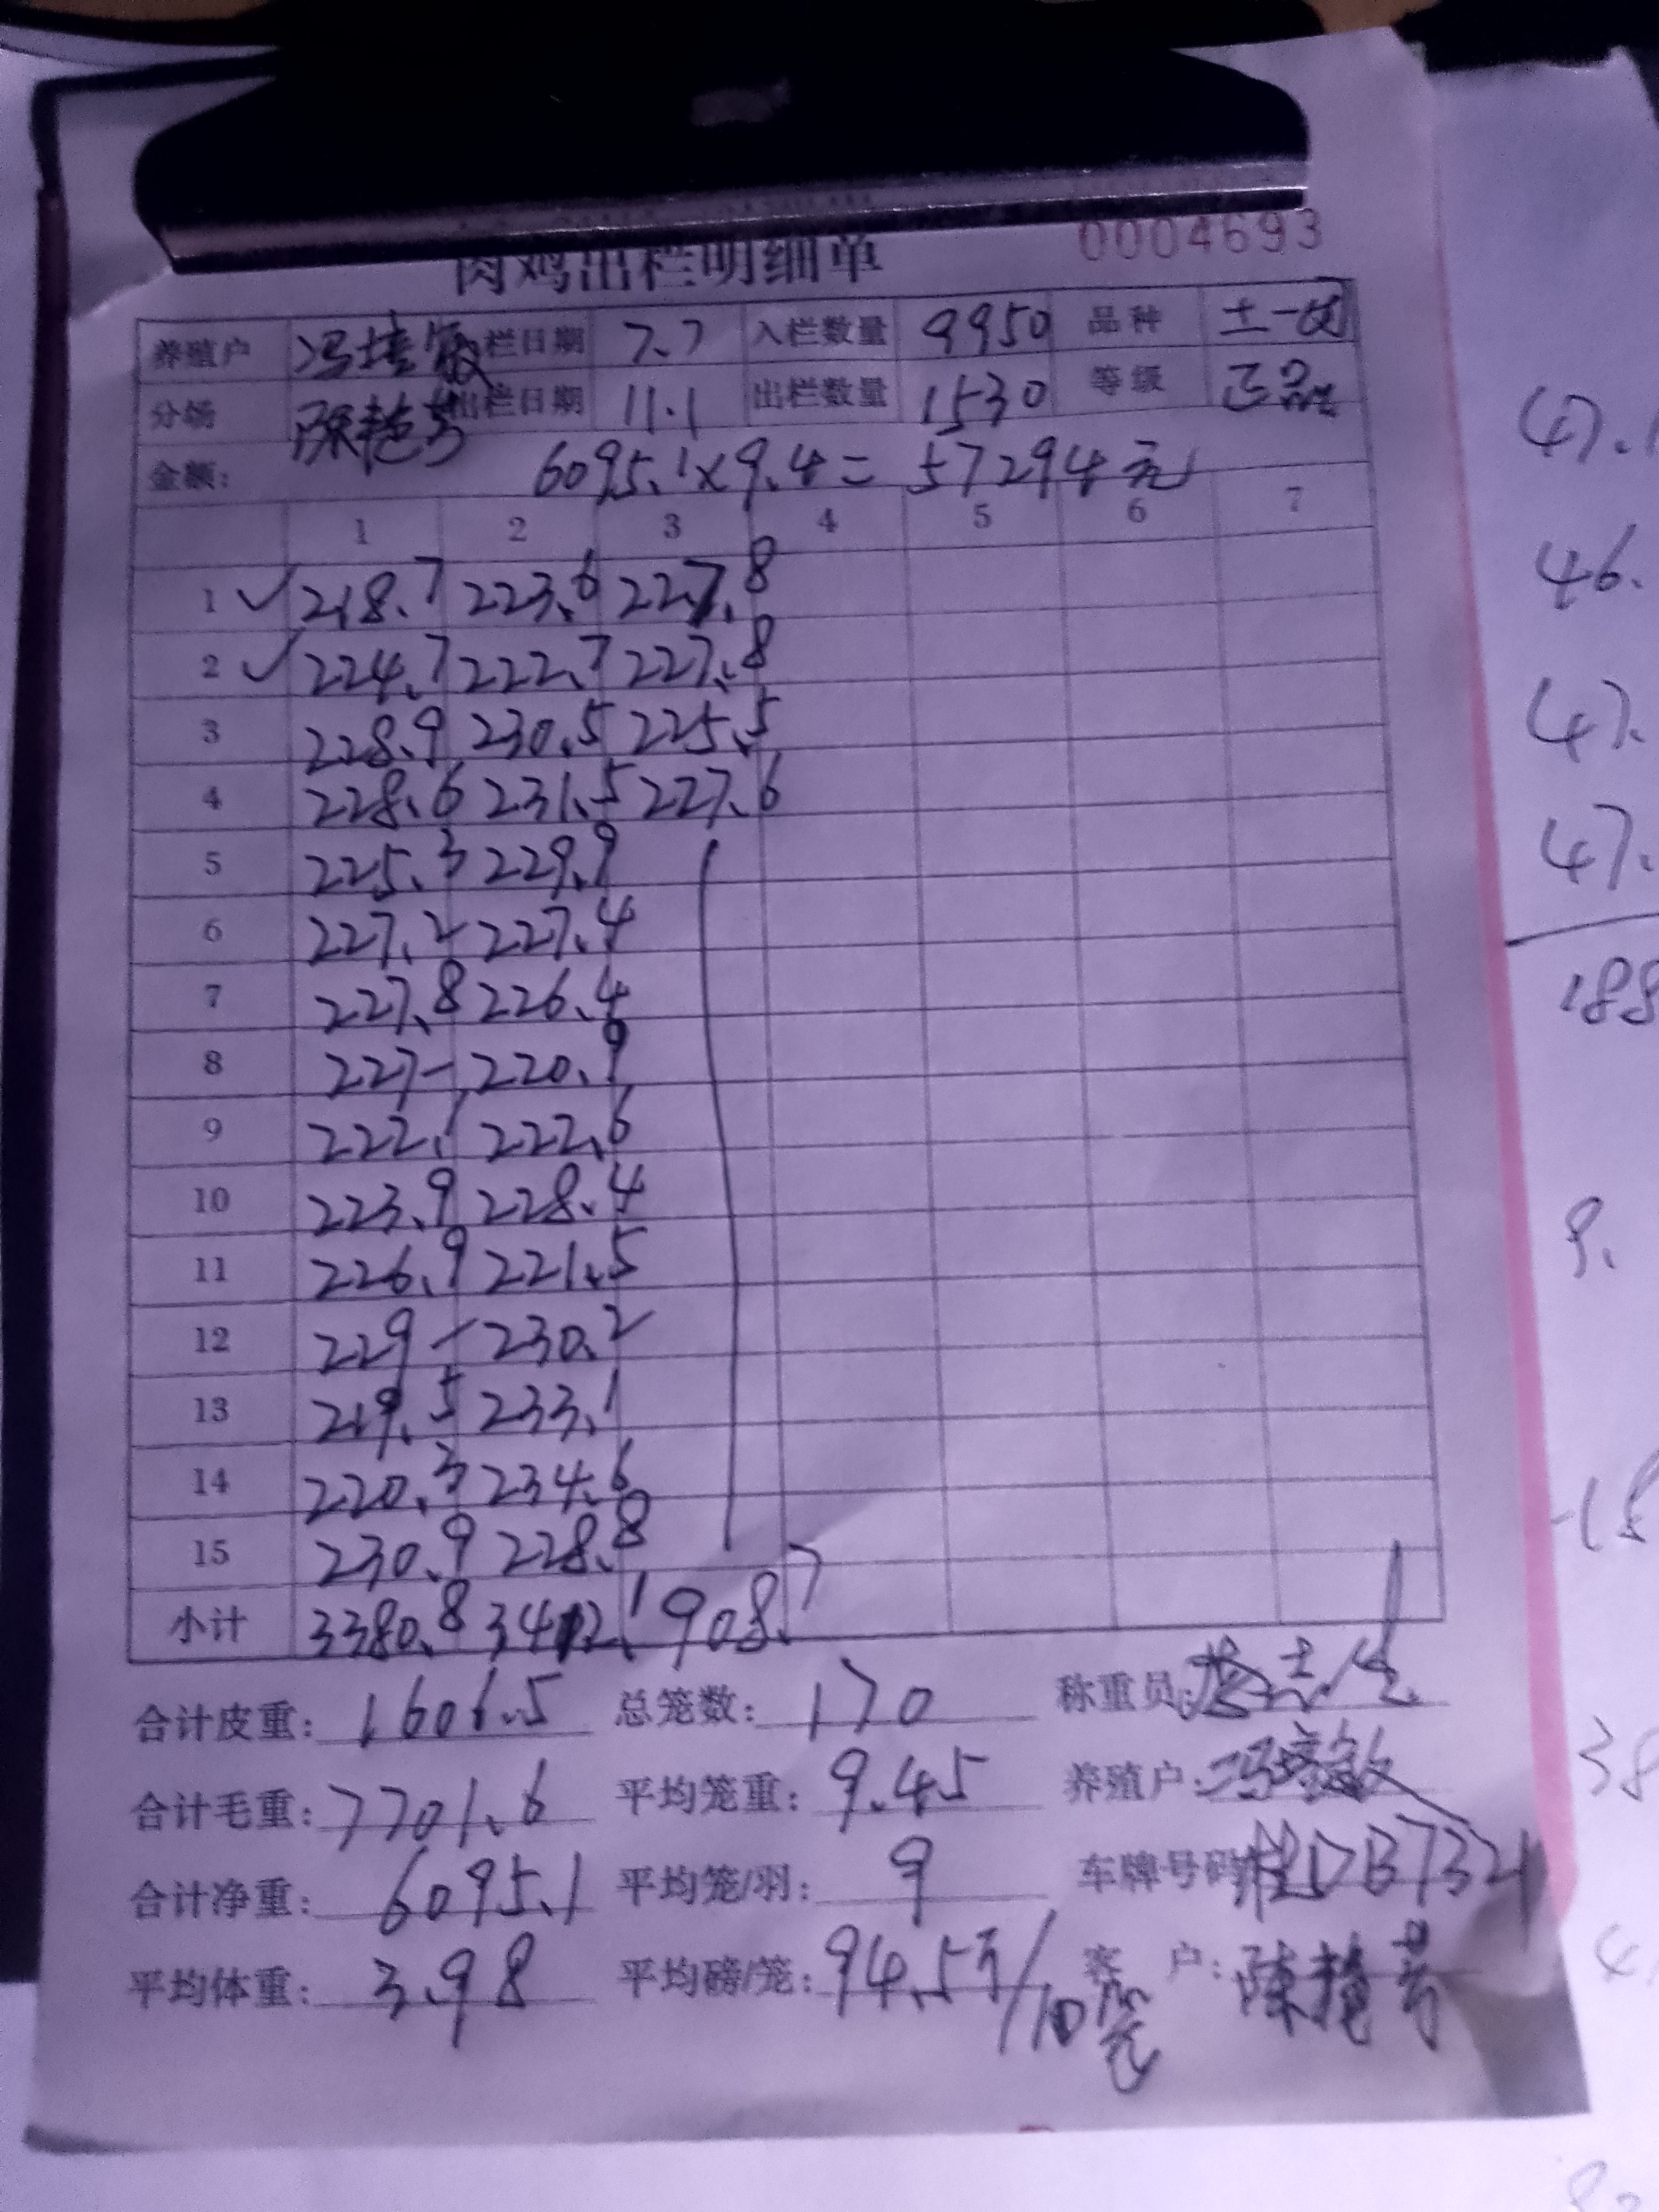 肉鸡出栏明细单 0004693
养殖户 冯培敏 栏日期 7.7 入栏数量 9950 品种 土一
分场 陈艳芳 出栏日期 11.1 出栏数量 1530 等级 正品
金额: 6095.1×9.4= 57294元
1 2 3 4 5 6 7
1 ✓ 218.7 223.6 227.8
2 ✓ 224.7 222.7 227.8
3 228.9 230.5 225.5
4 228.6 231.5 227.6
5 225.3 229.9
6 227.2 227.4
7 227.8 226.4
8 227- 220.9
9 222.1 222.6
10 223.9 228.4
11 226.9 221.5
12 229- 230.2
13 219.5 233.1
14 220.3 234.6
15 230.9 228.8
小计 3380.8 3412.1 908.7
合计皮重: 1606.5 总笼数: 170 称重员:
合计毛重: 7701.6 平均笼重: 9.45 养殖户: 冯培敏
合计净重: 6095.1 平均笼/羽: 9 车牌号码 桂DB7321
平均体重: 3.98 平均磅/笼: 94.5斤/10笼 客 户: 陈艳芳
47.1
46.
47.
47.
188
9.
18
38